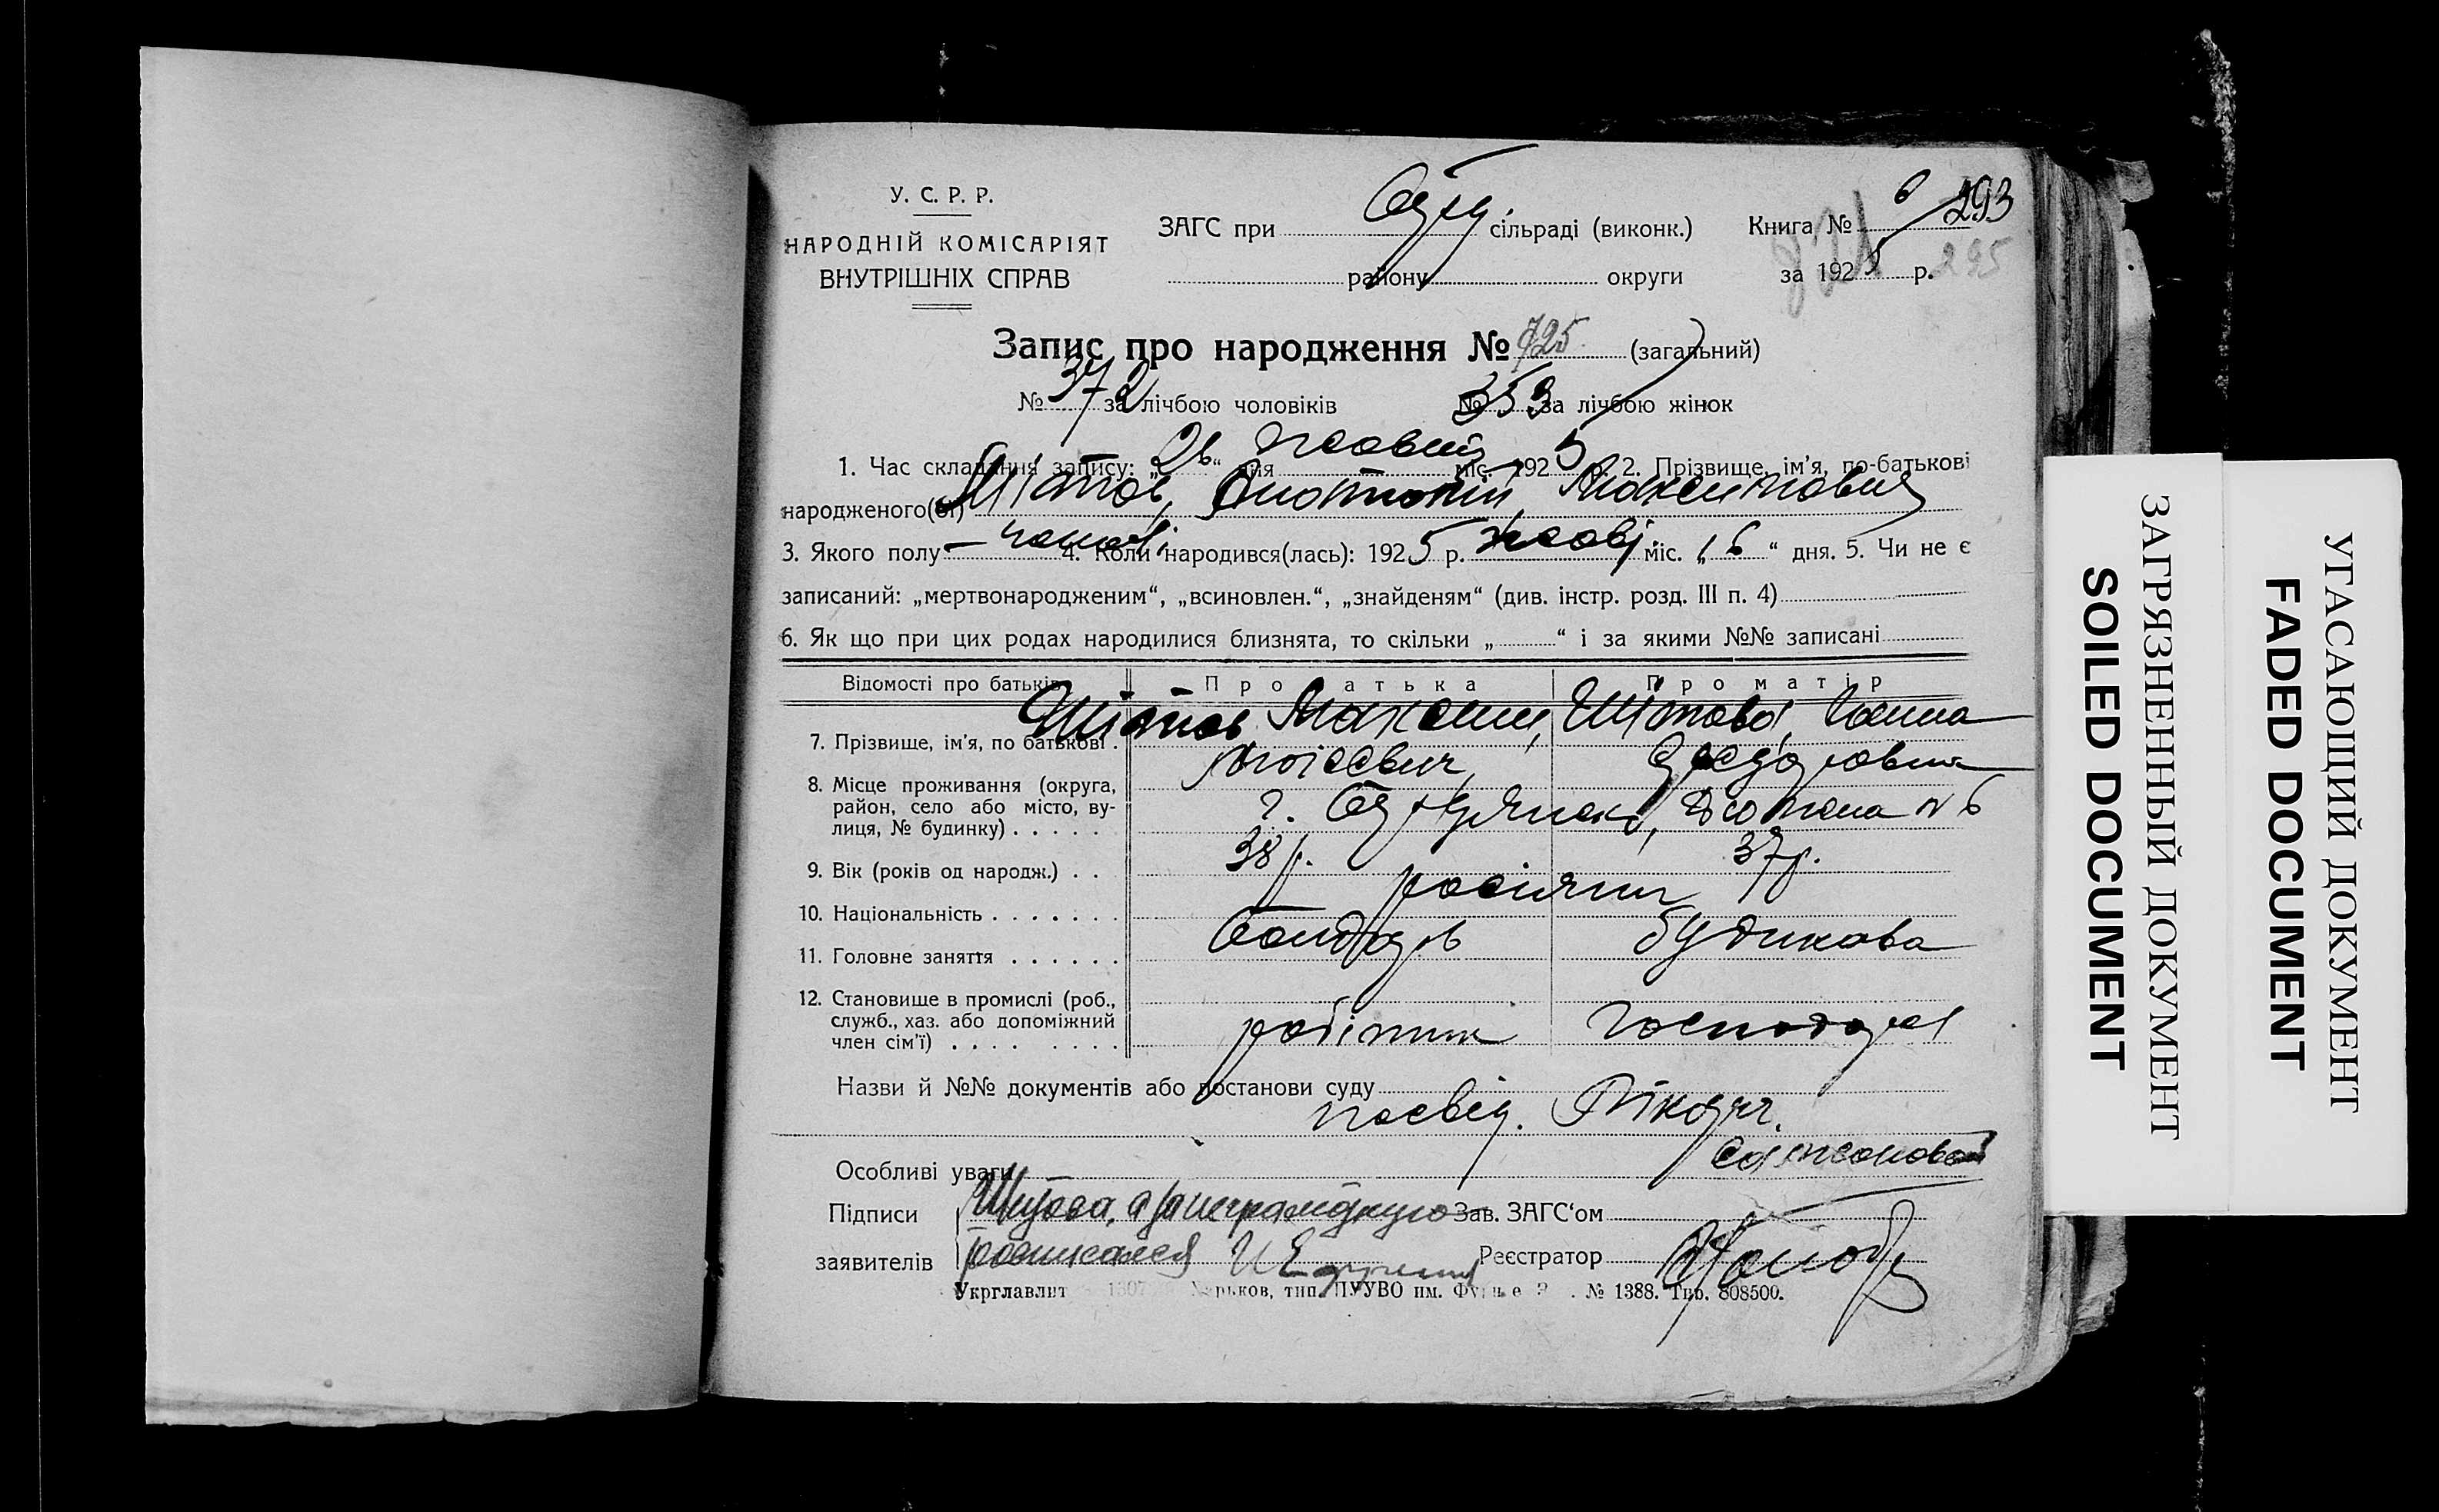 У. С. Р. Р.
НАРОДНІЙ КОМІСАРІЯТ
ВНУТРІШНІХ СПРАВ
ЗАГС при сільраді (виконк.)
району округи
Книга № 6 293
за 1925 р. 295
Запис про народження № 725 (загальний)
№ 372 за лічбою чоловіків № 353 за лічбою жінок
1. Час складання запису: „26“ дня жовтн міс. 1925 р. 2. Прізвище, ім'я, по-батькові
народженого(ої) Шітов, Анатолій Максимович
3. Якого полу – чолов. 4. Коли народився(лась): 1925 р. жовт. міс. „16“ дня. 5. Чи не є
записаний: „мертвонародженим“, „всиновлен.“, „знайденям“ (див. інстр. розд. III п. 4)
6. Як що при цих родах народилися близнята, то скільки „ “ і за якими №№ записані
Відомості про батьків Про батька Про матір
7. Прізвище, ім'я, по батькові . Шітов Максим Шітова, Ганна
8. Місце проживання (округа, район, село або місто, вулиця, № будинку) . . . . . г. № 6
9. Вік (років од народж.) . . 38 р. 37 р.
10. Національність . . . . . . . росіяни
11. Головне заняття . . . . . . Бондарь будинкова
12. Становище в промислі (роб., служб., хаз. або допоміжний член сім'ї) . . . . . . . . робітник господарка
Назви й №№ документів або постанови суду
посвід. Лікарн.
Особливі уваги
Підписи Шитова, а за неграмотную Зав. ЗАГС'ом
заявителів росписался Реєстратор
Укрглавлит Харьков, тип. ПУУВО им. Фрунзе № 1388. Тир. 808500.
ЗАГРЯЗНЕННЫЙ ДОКУМЕНТ
SOILED DOCUMENT
УГАСАЮЩИЙ ДОКУМЕНТ
FADED DOCUMENT